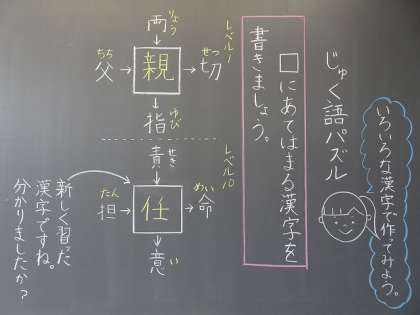 じゅく語パズル
いろいろな漢字で作ってみよう。
□にあてはまる漢字を
書きましょう。
レベル1
両
りょう
父
ちち
親
切
せつ
指
ゆび
レベル10
責
せき
担
たん
任
命
めい
意
い
新しく習った
漢字ですね。
分かりましたか?